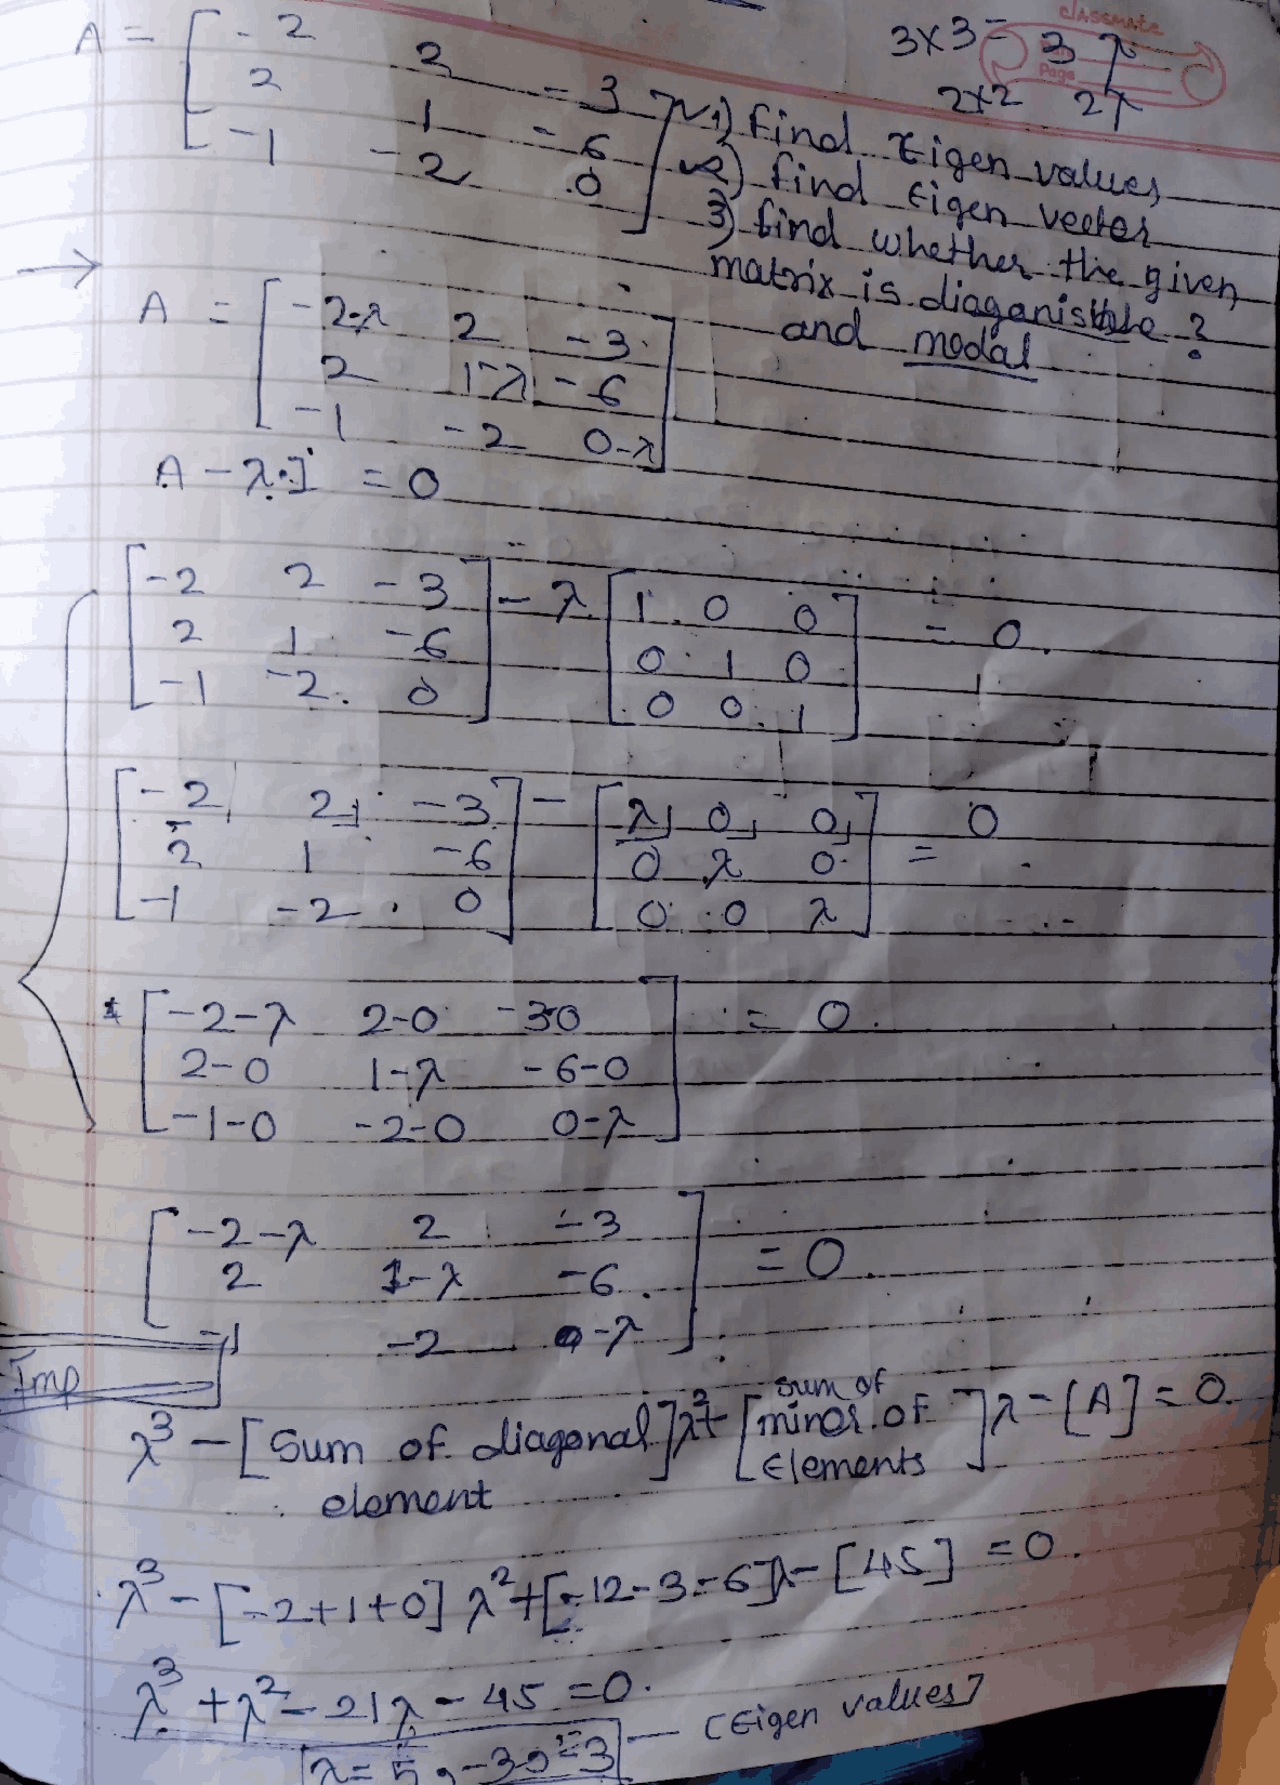 classmate
Page
3×3 = 3 λ
2×2 2λ
A = [ -2 2 -3
2 1 -6
-1 -2 0 ]
1) find Eigen values
2) find Eigen vector
3) find whether the given
matrix is diaganisable ?
and modal
→
A = [ -2-λ 2 -3
2 1-λ -6
-1 -2 0-λ ]
A - λ·I = 0
[ -2 2 -3 ] - λ [ 1 0 0 ] = 0
2 1 -6 0 1 0
-1 -2 0 0 0 1
[ -2 2 -3 ] - [ λ 0 0 ] = 0
2 1 -6 0 λ 0
-1 -2 0 0 0 λ
[ -2-λ 2-0 -3-0 ] = 0
2-0 1-λ -6-0
-1-0 -2-0 0-λ
[ -2-λ 2 -3 ] = 0
2 1-λ -6
-1 -2 0-λ
Imp
λ³ - [Sum of diagonal element] λ² + [sum of minor of Elements] λ - [A] = 0
λ³ - [-2+1+0] λ² + [-12-3-6]λ - [45] = 0
λ³ + λ² - 21λ - 45 = 0
λ = 5, -3, -3 — [Eigen values]